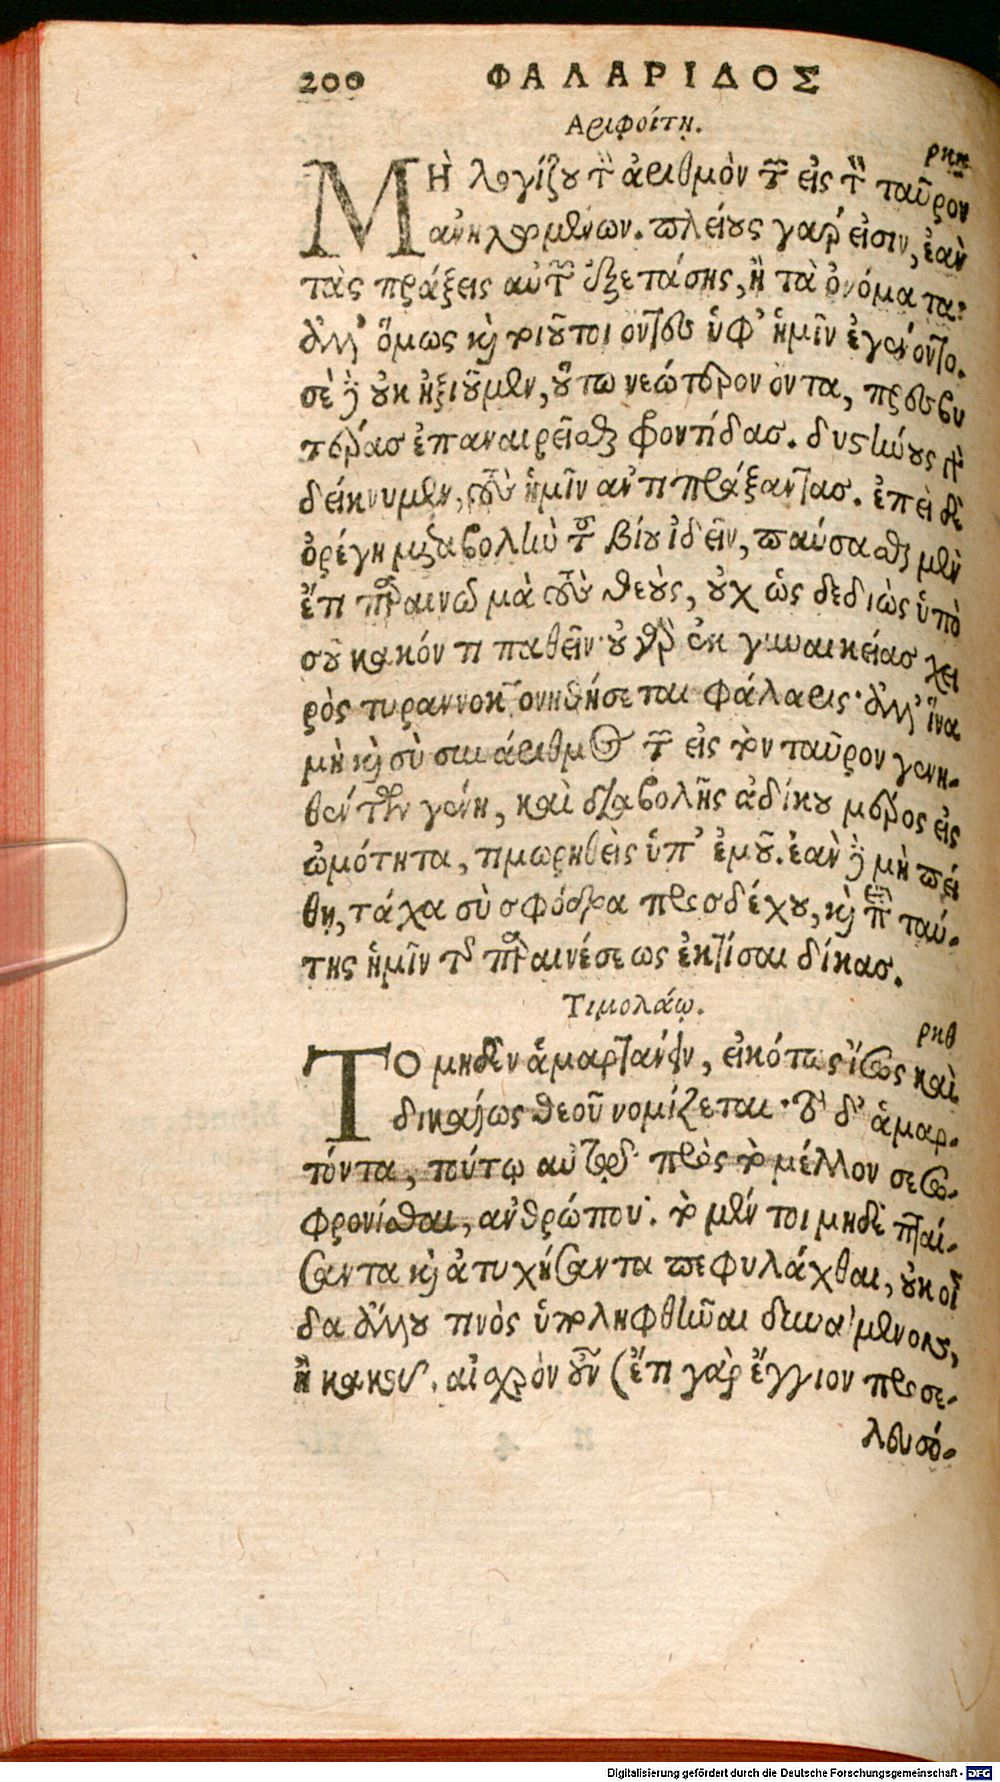 200 ΦΑΛΑΡΙΔΟΣ
Αριφοίτῃ.
ρκη
ΜῊ λογίζου τὸν ἀριθμὸν τῶν εἰς τὸν ταῦρον
ἀνηλωμένων. πλείους γάρ εἰσιν, ἐὰν
τὰς πράξεις αὐτῶν ἐξετάσῃς, ἢ τὰ ὀνόματα·
ἀλλ' ὅμως καὶ τοιοῦτοι ὄντες ὑφ' ἡμῖν ἐγένοντο.
σὲ δὲ οὐκ ἠξιοῦμεν, οὕτω νεώτερον ὄντα, πρεσβυ
τέρας ἐπαναιρεῖσθαι φροντίδας. δυσμενοῦς
δείκνυμεν, τοὺς ἡμῖν ἀντιπράξαντας. ἐπεὶ δὲ
ὀρέγῃ μεταβολὴν τοῦ βίου ἰδεῖν, παύσασθαι μὲν
ἔτι παραινῶ μὰ τοὺς θεοὺς, οὐχ ὡς δεδιὼς ὑπὸ
σοῦ κακόν τι παθεῖν· οὐ γὰρ ἐκ γυναικείας χει
ρὸς τυραννοκτονηθήσεται Φάλαρις· ἀλλ' ἵνα
μὴ καὶ σὺ συναριθμος τῶν εἰς τὸν ταῦρον γενη-
θέντων γένῃ, καὶ διαβολῆς ἀδίκου μέρος εἰς
ὠμότητα, τιμωρηθεὶς ὑπ' ἐμοῦ. ἐὰν δὲ μὴ πεί
θῃ, τάχα σὺ σφόδρα προσδέχου, καὶ ἐπὶ ταύ-
της ἡμῖν τῆς παραινέσεως ἐκτίσαι δίκας.
Τιμολάῳ.
ρκθ
ΤΟ μηδὲν ἁμαρτάνειν, εἰκότως ἴσως καὶ
δικαίως θεοῦ νομίζεται· τὸ δ' ἁμαρ-
τόντα, τούτῳ αὐτῷ πρὸς τὸ μέλλον σεσω-
φρονίσθαι, ἀνθρώπου· τὸ μέν τοι μηδὲ πταί-
σαντα καὶ ἀτυχήσαντα πεφυλάχθαι, οὐκ οἶ
δα ἄλλου τινὸς ὑποληφθῆναι δυναμένοις,
ἢ κακοῦ. αἰσχρὸν οὖν (ἔτι γὰρ ἔγγιον προσε-
λευσό-
Digitalisierung gefördert durch die Deutsche Forschungsgemeinschaft - DFG